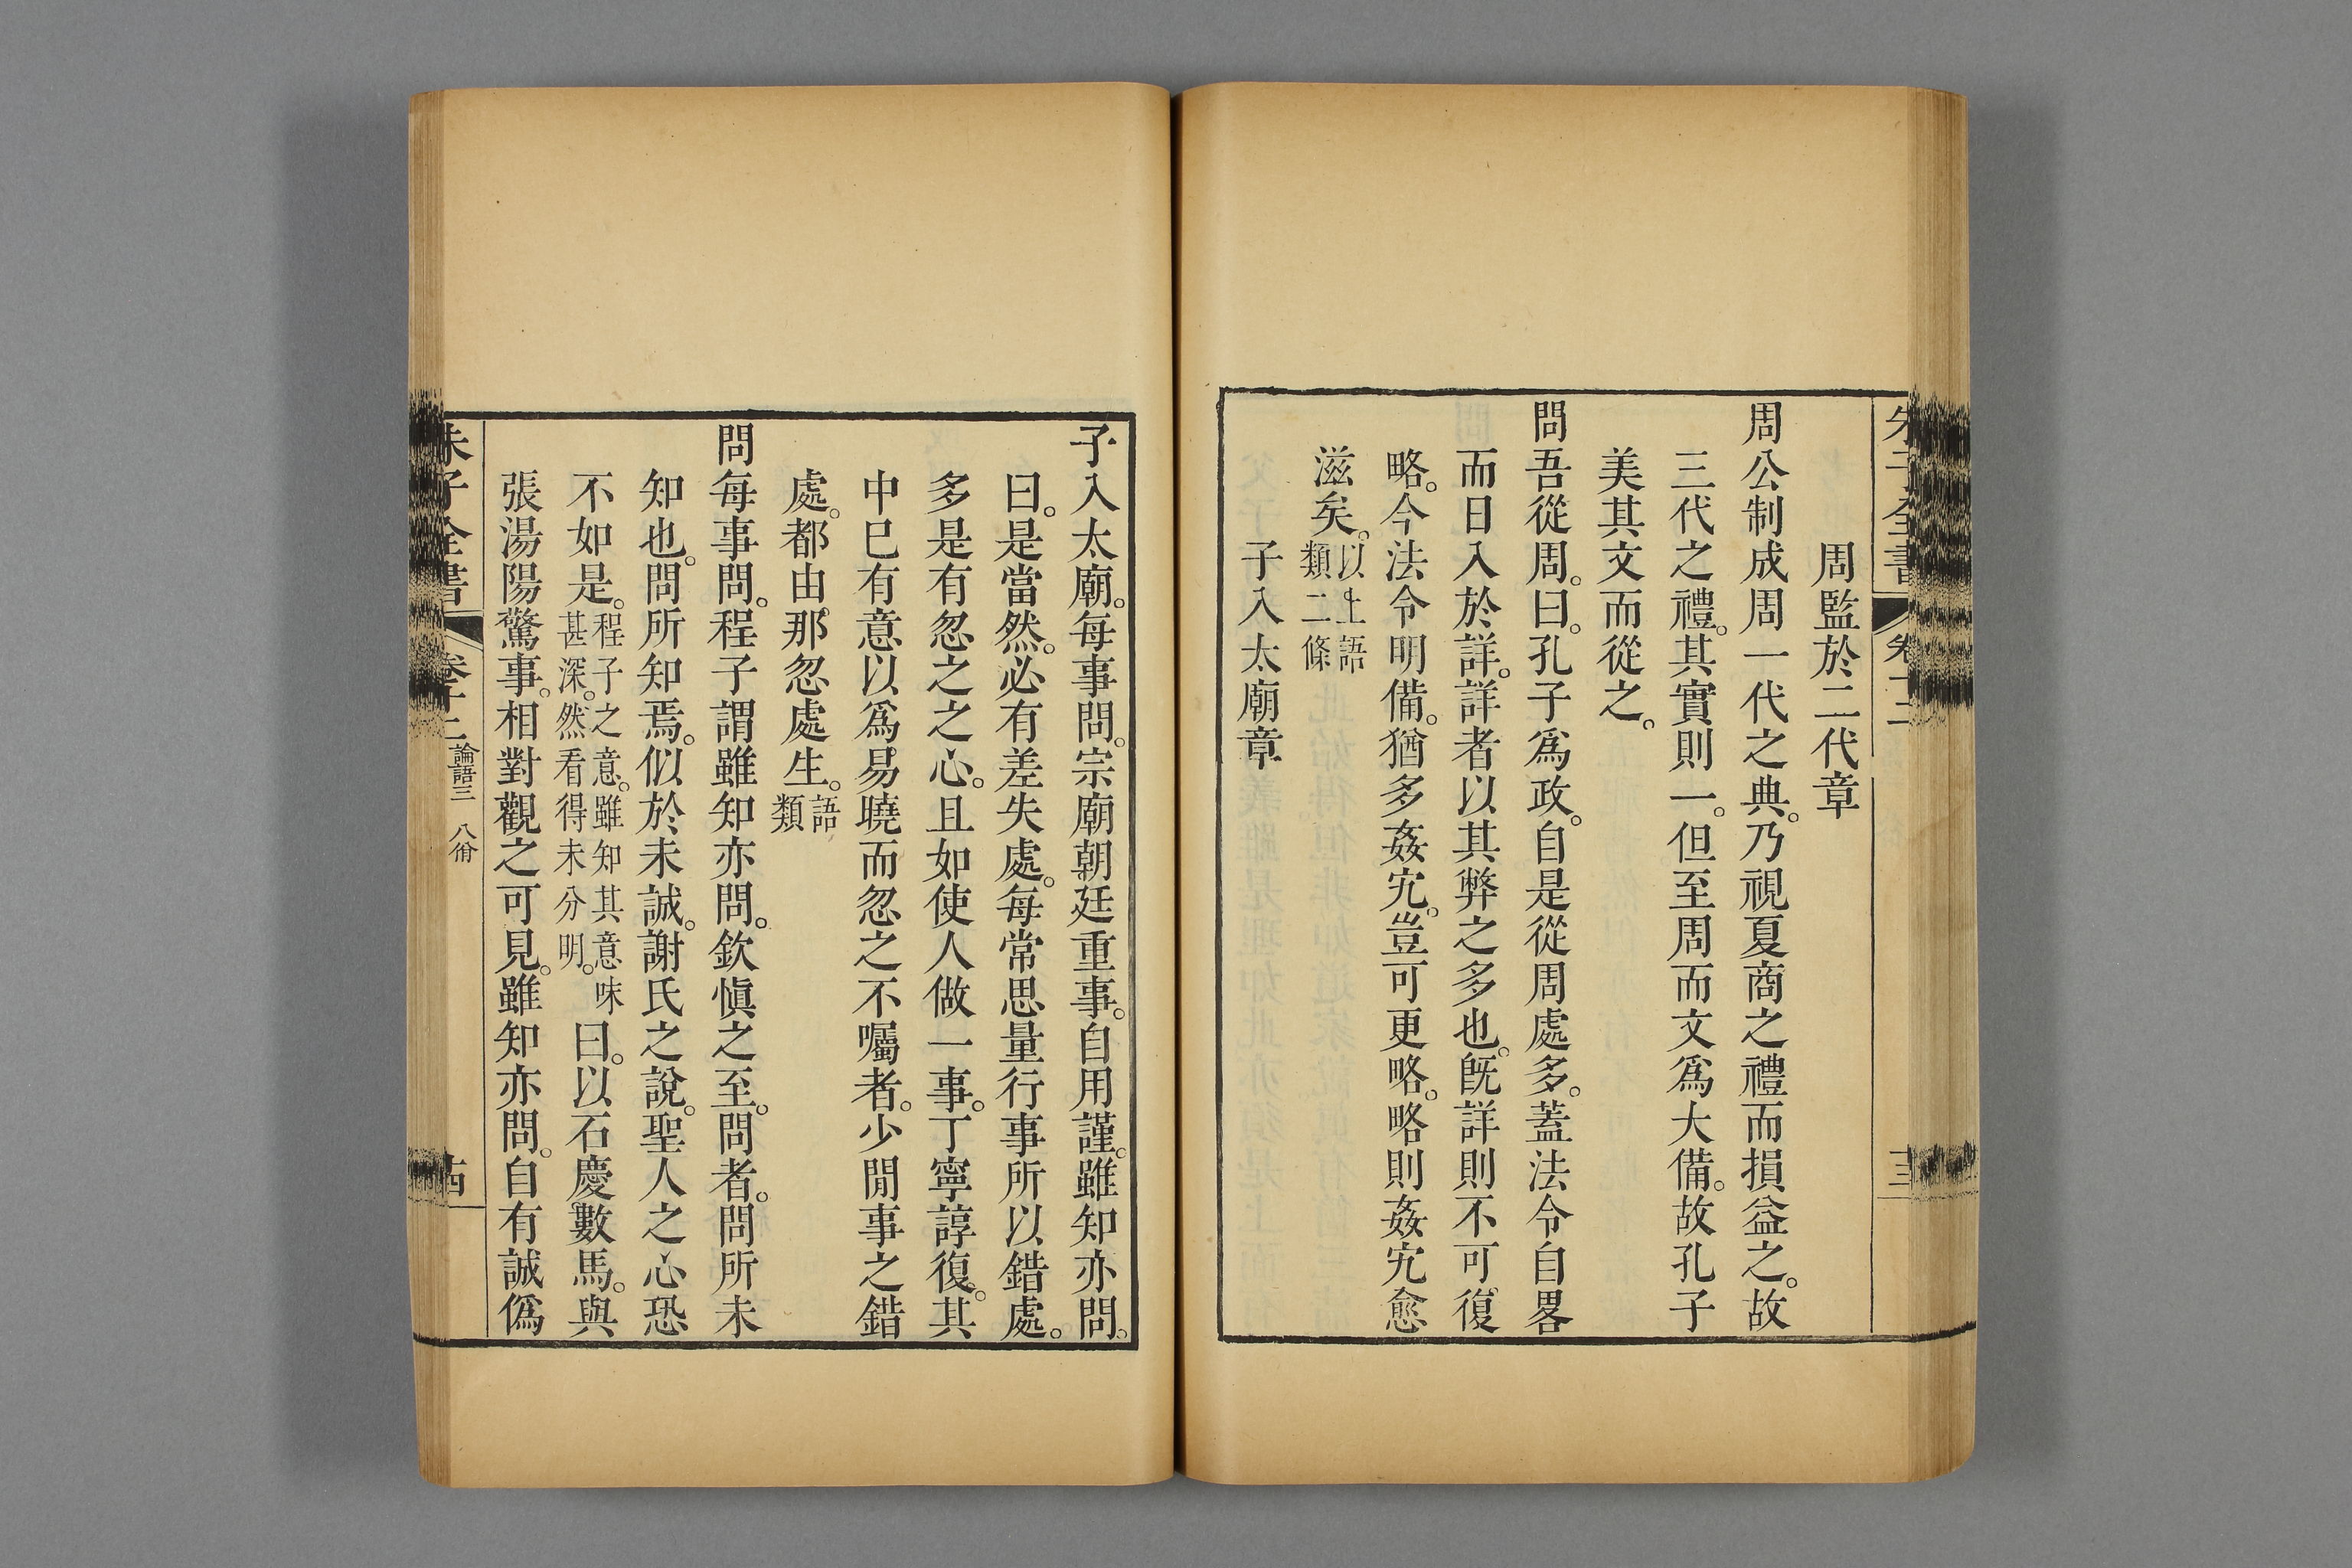 周監於二代章
周公制成周一代之典。乃視夏商之禮而損益之。故
三代之禮。其實則一。但至周而文爲大備。故孔子
美其文而從之。
問吾從周。曰。孔子爲政。自是從周處多。蓋法令自畧
而日入於詳。詳者以其弊之多也。旣詳則不可復
略。今法令明備。猶多姦宄。豈可更略。略則姦宄愈
滋矣。以上語
類二條
子入太廟章
子入太廟。每事問。宗廟朝廷重事。自用謹。雖知亦問。
曰。是當然。必有差失處。每常思量行事所以錯處。
多是有忽之之心。且如使人做一事。丁寧諄復。其
中已有意以爲易曉而忽之不囑者。少閒事之錯
處。都由那忽處生。語
類
問每事問。程子謂雖知亦問。欽愼之至。問者。問所未
知也。問所知焉。似於未誠。謝氏之說。聖人之心恐
不如是。程子之意。雖知其意味
甚深。然看得未分明。
曰。以石慶數馬。與
張湯陽驚事。相對觀之可見。雖知亦問。自有誠僞
朱子全書
論語三 八佾